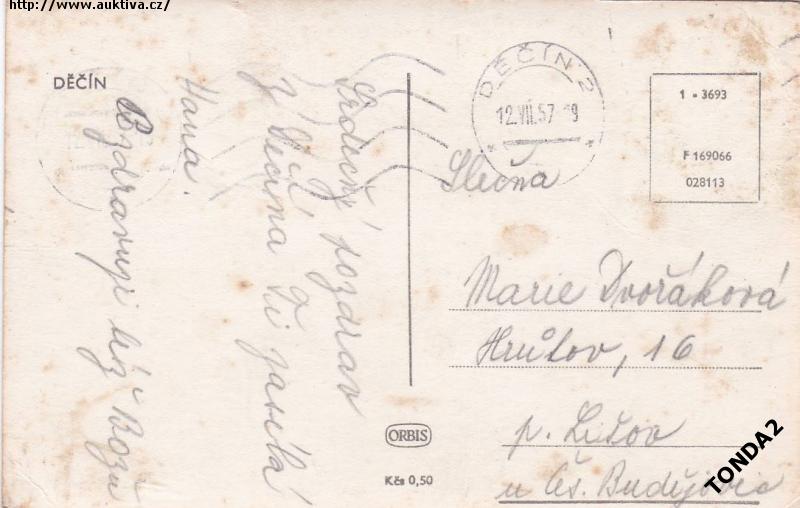 http://www.auktiva.cz/
DĚČÍN
Srdečný pozdrav
z Děčína Ti zasílá
Hana.
Pozdravuji též Božu
DĚČÍN 2
12.VII.57-19
1 - 3693
F 169066
028113
Slečna
Marie Dvořáková
Hrůtov, 16
p. Lišov
u Čs. Budějovic
ORBIS
Kčs 0,50
TONDA2